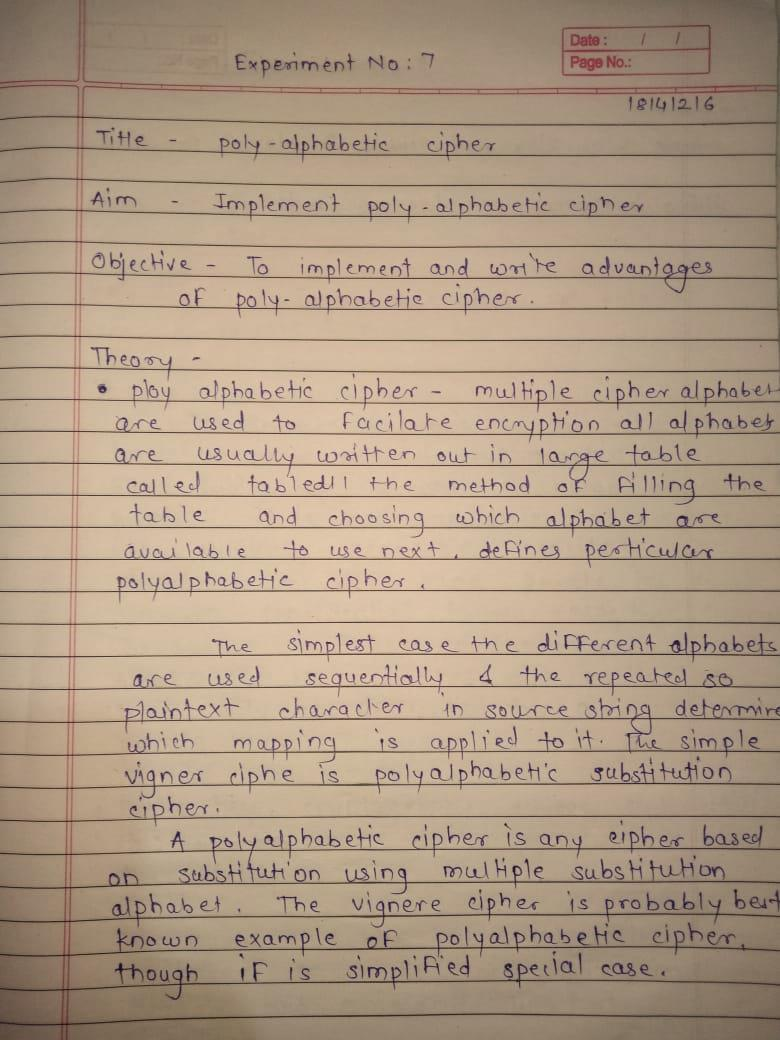 Experiment No: 7
Date: / /
Page No.:
18141216
Title - poly-alphabetic cipher
Aim - Implement poly-alphabetic cipher
Objective - To implement and write advantages
of poly-alphabetic cipher.
Theory -
• ploy alphabetic cipher - multiple cipher alphabet
are used to facilate encryption all alphabet
are usually written out in large table
called the method of filling the
table and choosing which alphabet are
available to use next, defines perticular
polyalphabetic cipher.
The simplest case the different alphabets
are used sequentially & the repeated so
plaintext character in source string determine
which mapping is applied to it. The simple
vigner ciphe is polyalphabetic substitution
cipher.
A polyalphabetic cipher is any cipher based
on substitution using multiple substitution
alphabet. The vignere cipher is probably best
known example of polyalphabetic cipher,
though if is simplified special case.